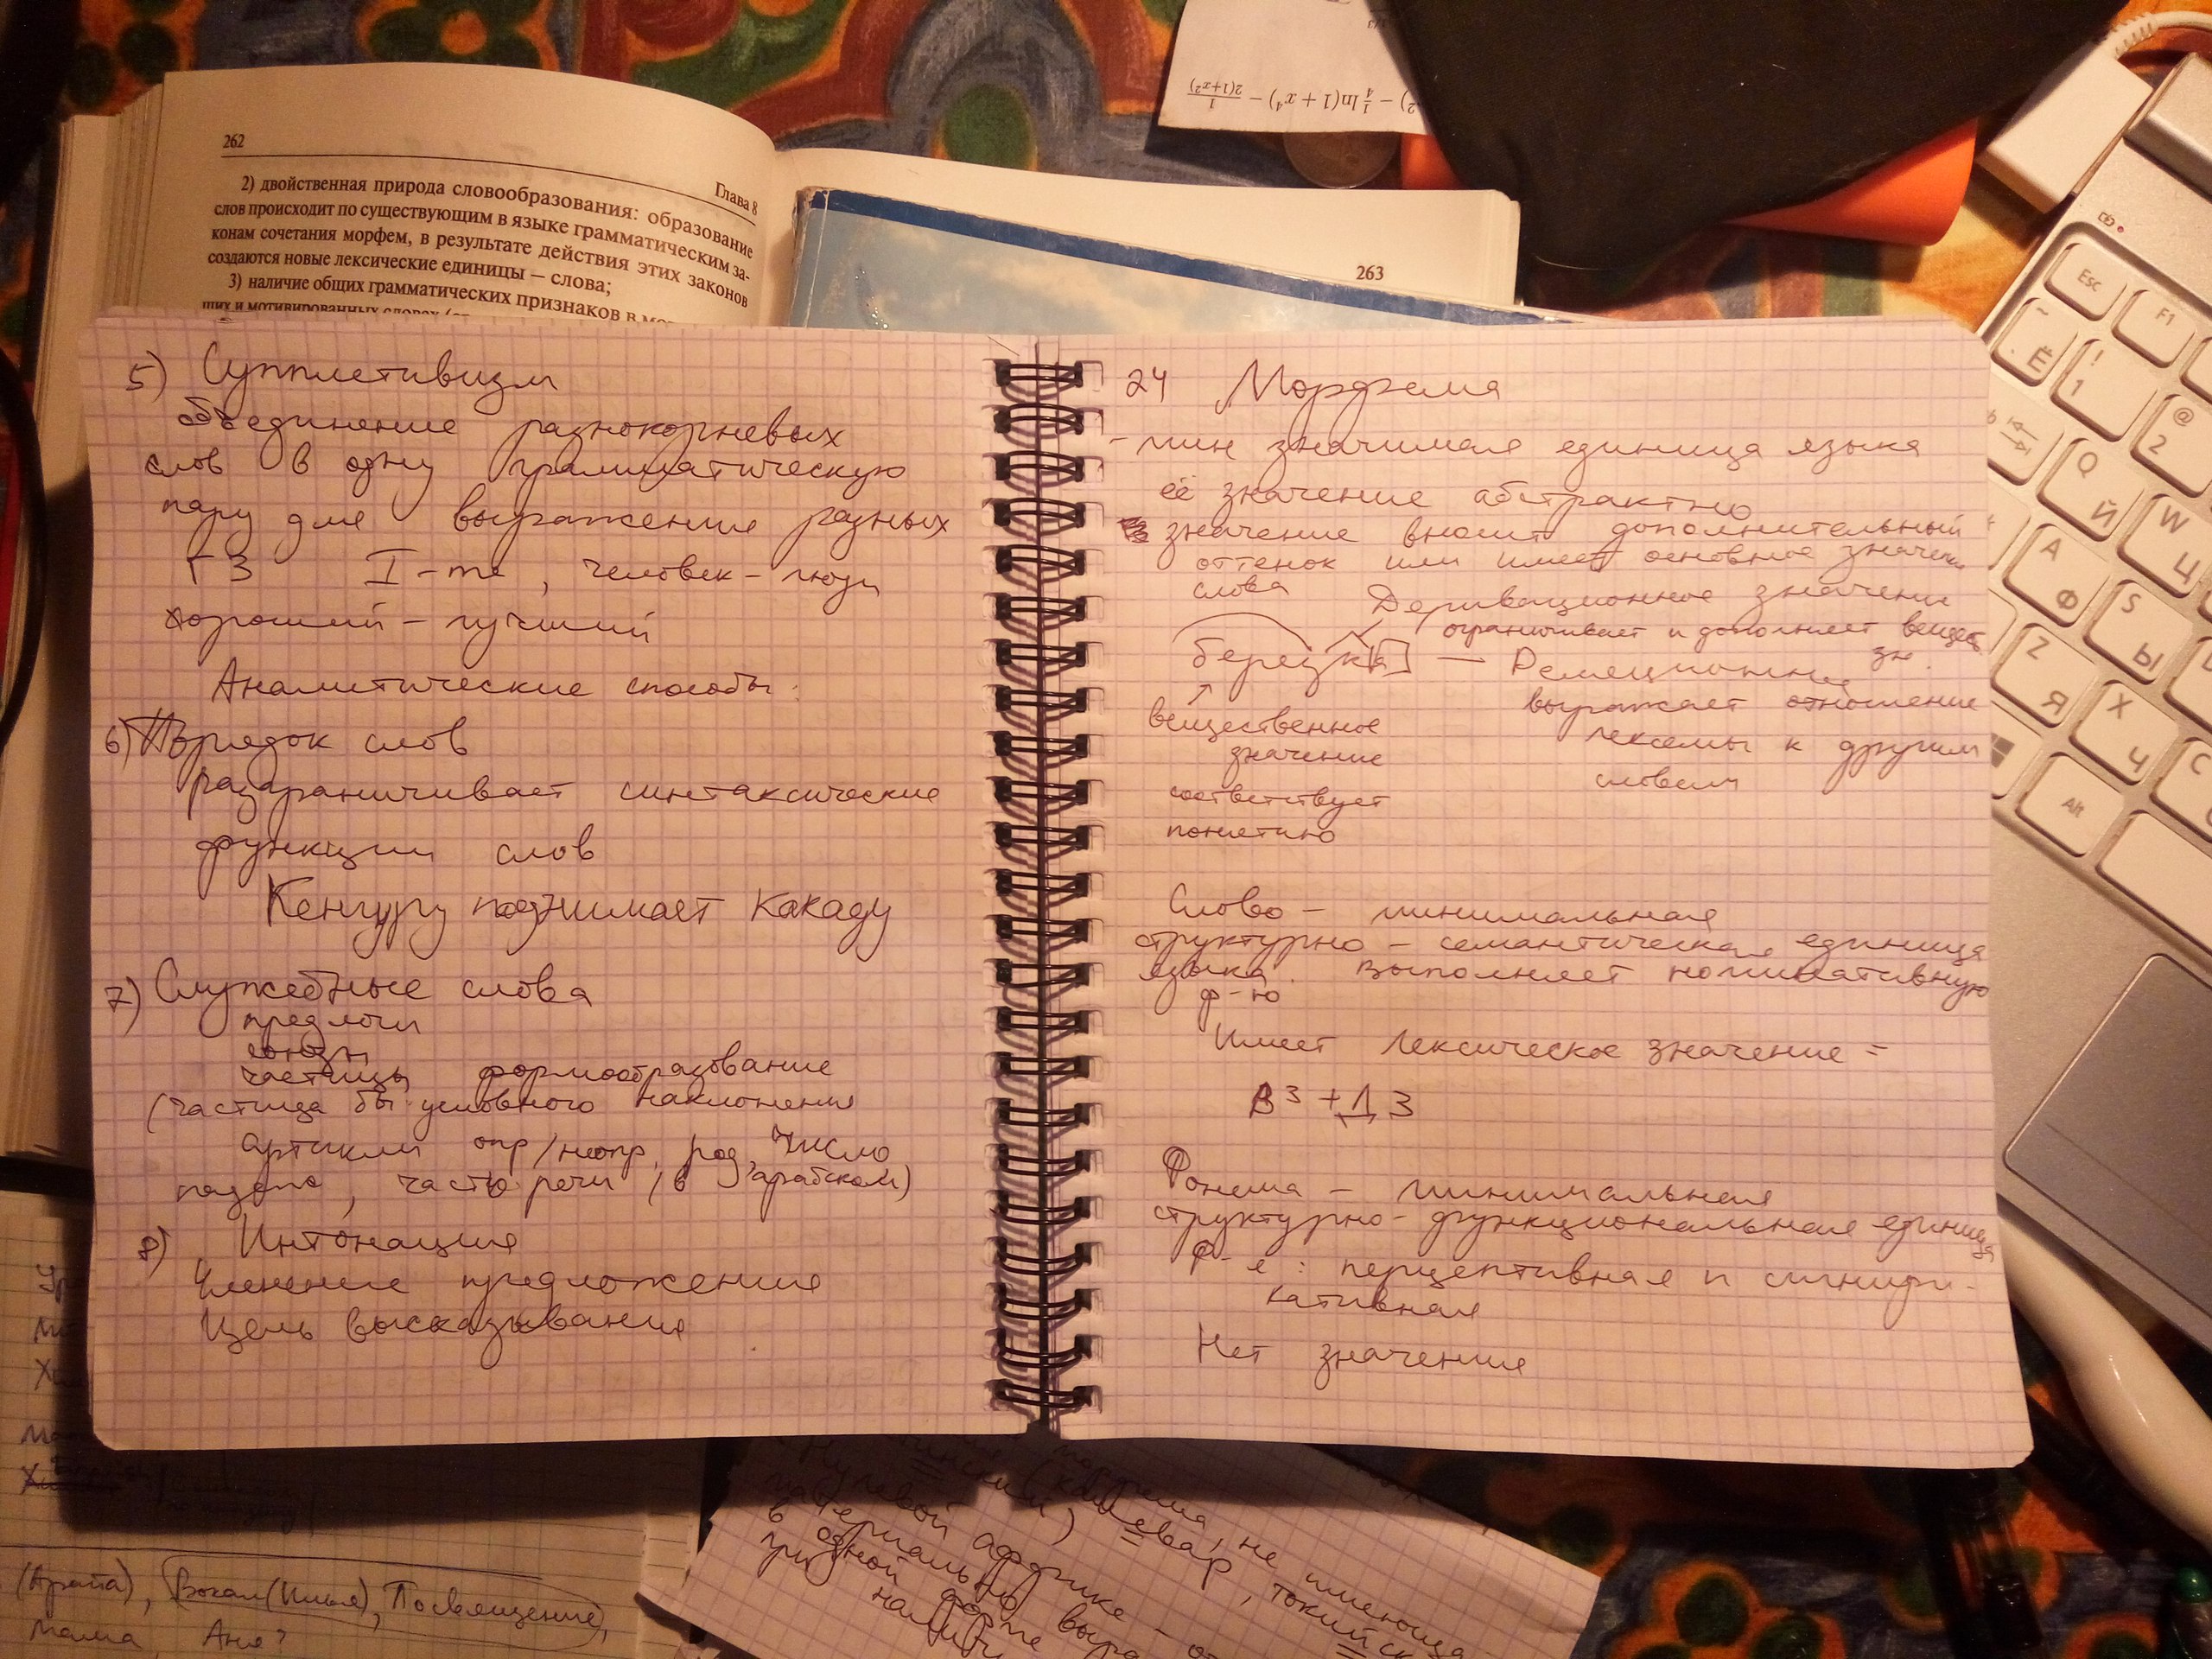 262
Глава 8
2) двойственная природа словообразования: образование
слов происходит по существующим в языке грамматическим за-
конам сочетания морфем, в результате действия этих законов
создаются новые лексические единицы — слова;
3) наличие общих грамматических признаков в
щих и мотивированных словах
263
− 1/4 ln(1 + x⁴) − 1/2(1+x²)
5) Супплетивизм
объединение разнокорневых
слов в одну грамматическую
пару для выражения разных
ГЗ I - me, человек - люди
хороший - лучший
Аналитические способы:
6) Порядок слов
разграничивает синтаксические
функции слов
Кенгуру поднимает какаду
7) Служебные слова
предлоги
союзы
частицы формообразование
(частица бы условного наклонения
артикли опр/неопр, род, число
падеж, часть речи (в арабском)
8) Интонация
Членение предложения
Цель высказывания
24 Морфема
- мин значимая единица языка
её значение абстрактно
значение вносит дополнительный
оттенок или имеет основное значение
слова
Деривационное значение
ограничивает и дополняет вещес
зн.
березка — Реляционное
выражает отношение
лексемы к другим
словам
вещественное
значение
соответствует
понятию
Слово - минимальная
структурно - семантическая единица
языка. Выполняет номинативную
ф-ю
Имеет лексическое значение =
ВЗ + ДЗ
Фонема - минимальная
структурно - функциональная единица
ф-я: перцептивная и сигнифи-
кативная
Нет значения
Esc
F1
~ Ё
! 1
@ 2
Q Й
W Ц
A Ф
S Ы
Z Я
X Ч
C
Alt
(Агата), Вокал (Илья), Посвящение,
Мама Аня?
морфема, не имеющая
(кашевар, токийск
нулевой аффикс - от
материально выра
в одной форме
при налич